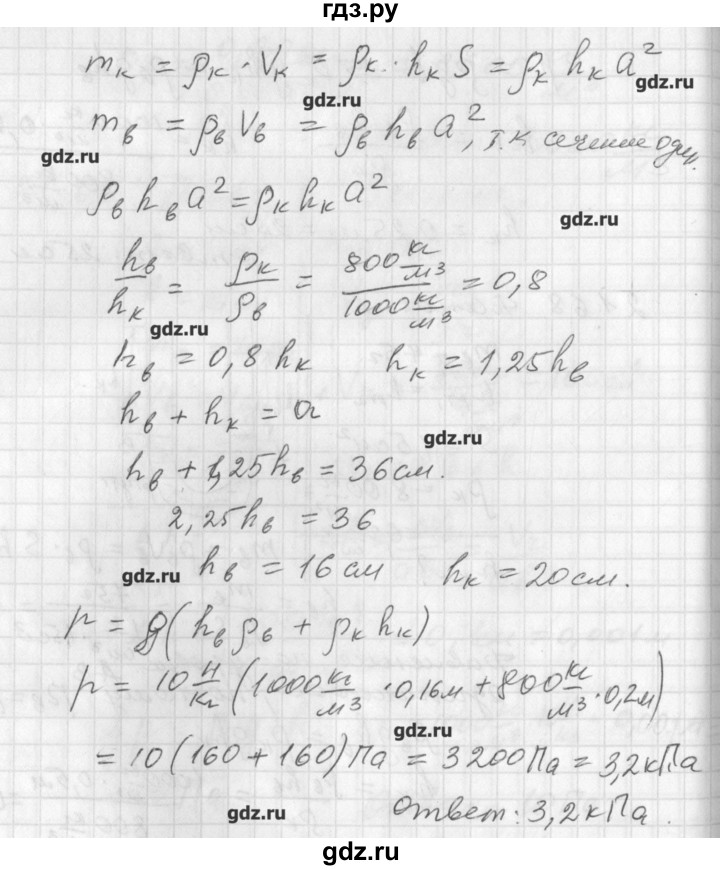 гдз.ру
mк = ρк · Vк = ρк · hк S = ρк hк a²
gdz.ru
gdz.ru
mв = ρв Vв = ρв hв a², т.к сечение один.
gdz.ru
ρв hв a² = ρк hк a²
gdz.ru
hв/hк = ρк/ρв = 800 кг/м³ / 1000 кг/м³ = 0,8
gdz.ru
hв = 0,8 hк hк = 1,25hв
hв + hк = a
gdz.ru
hв + 1,25hв = 36 см.
2,25hв = 36
gdz.ru hв = 16 см hк = 20 см.
p = g(hв ρв + ρк hк)
p = 10 Н/кг (1000 кг/м³ · 0,16м + 800 кг/м³ · 0,2м)
gdz.ru
= 10 (160 + 160) Па = 3200 Па = 3,2 кПа
gdz.ru
Ответ: 3,2 кПа.
gdz.ru